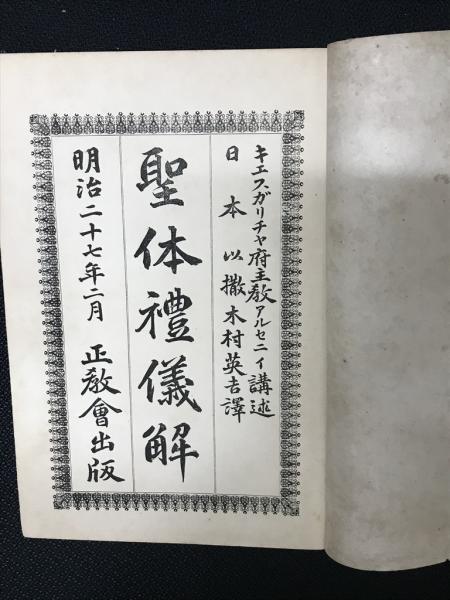 キエフ、ガリチャ府主敎アルセニイ講述
日本 以撒木村英吉譯
聖体禮儀解
明治二十七年二月 正敎會出版